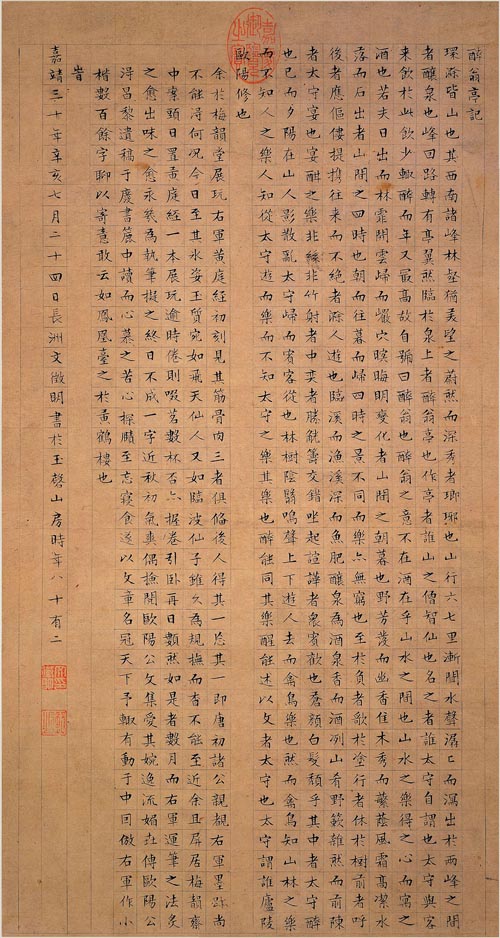 醉翁亭記
環滁皆山也其西南諸峰林壑猶美望之蔚然而深秀者瑯琊也山行六七里漸聞水聲潺〻而瀉出於兩峰之間
者釀泉也峰回路轉有亭翼然臨於泉上者醉翁亭也作亭者誰山之僧智仙也名之者誰太守自謂也太守與客
来飲於此飲少輒醉而年又最高故自號曰醉翁也醉翁之意不在酒在乎山水之間也山水之樂得之心而寓之
酒也若夫日出而林霏開雲歸而巖穴暝晦明變化者山間之朝暮也野芳發而幽香佳木秀而繁蔭風霜高潔水
落而石出者山間之四時也朝而往暮而歸四時之景不同而樂亦無窮也至於負者歌於塗行者休於樹前者呼
後者應傴僂提攜往来而不絶者滁人遊也臨溪而漁溪深而魚肥釀泉為酒泉香而酒冽山肴野蔌雜然而前陳
者太守宴也宴酣之樂非絲非竹射者中奕者勝觥籌交錯坐起諠譁者衆賓歡也蒼顔白髮頽乎其中者太守醉
也已而夕陽在山人影散亂太守歸而賓客從也林樹陰翳鳴聲上下遊人去而禽鳥樂也然而禽鳥知山林之樂
而不知人之樂人知從太守遊而樂而不知太守之樂其樂也醉能同其樂醒能述以文者太守也太守謂誰廬陵
歐陽修也
余於梅韻堂展玩右軍黃庭經初刻見其筋骨肉三者俱備後人得其一忘其一即唐初諸公親覩右軍墨跡尚
不能淂何况今日至其氷姿玉質宛如飛天仙人又如臨波仙子雖久為規撫而杳不能至近余且屏居梅韻齋
中案頭日置黃庭經一本展玩逾時倦則啜茗數杯否亦握卷引卧再日數然如是者數月而右軍運筆之法炙
之愈出味之愈永幾為執筆擬之終日不成一字近秋初氣爽偶撫開歐陽公文集愛其婉逸流媚世傳歐陽公
淂昌黎遺稿于廢書簏中讀而心慕之苦心探賾至忘寝食遂以文章名冠天下予輒有動于中囙倣右軍作小
楷數百餘字聊以寄意敢云如鳳凰臺之於黃鶴樓也
旹
嘉靖三十年辛亥七月二十四日長洲文徵明書於玉磬山房時年八十有二